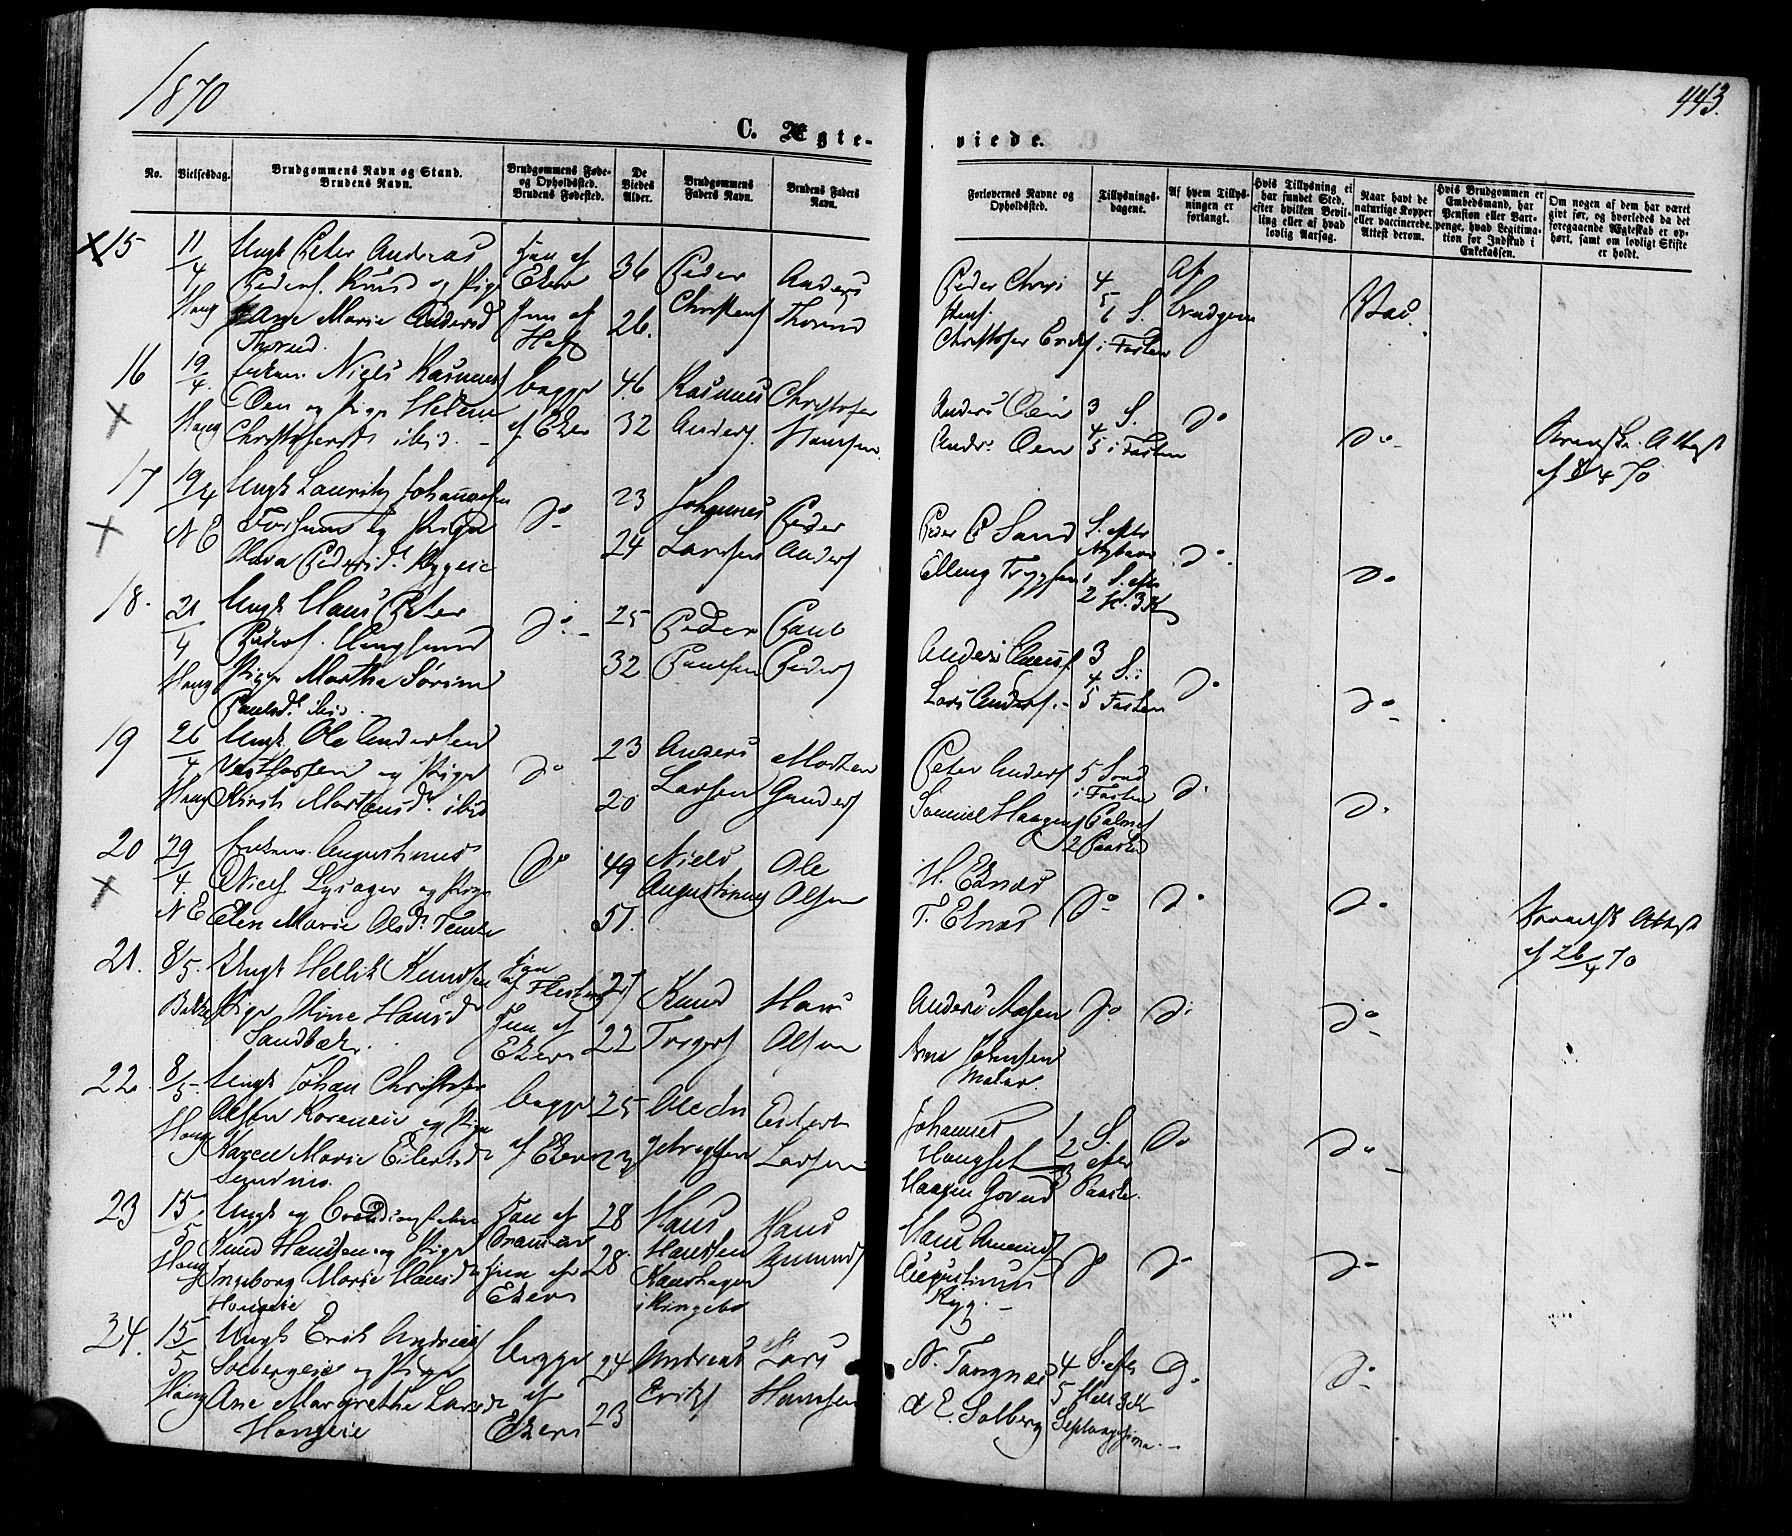 1870
443.
C. Ægte-
viede.
No.
Vielsesdag.
Brudgommens Navn og Stand.
Brudens Navn.
Brudgommens Føde-
og Opholdssted.
Brudens Fødested.
De
Viedes
Alder.
Brudgommens
Faders Navn.
Brudens Faders
Navn.
Forlovernes Navne og
Opholdssted.
Tillysnings-
dagene.
Af hvem Tillys-
ningen er
forlangt.
Hvis Tillysning ei
har fundet Sted,
efter hvilken Bevil-
ling eller af hvad
lovlig Aarsag.
Naar havt de
naturlige Kopper
eller vaccinerede.
Attest derom.
Hvis Brudgommen er
Embedsmand, har
Pension eller Var-
penge, hvad Legitima-
tion for Indskud i
Enkekassen.
Om nogen af dem har været
gift før, og hvorledes da det
foregaaende Ægteskab er op-
hørt, samt om lovligt Skifte
er holdt.
15 11/4 Haug
Ungk Peter Andreas
Peders. Ruud og Pige
Ane Marie Andersd
Thorud.
Han af
Eker
Hun af
36
26.
Peder
Christens
Anders
Thorud
Peder Chri
stens.
Christofer
4
5
6 S.
i Fasten
Af
Brudgom
Vac.
16 19/4. Haug
Enkem. Niels Rasmuss
Oen og Pige Helene
Christofersd ibid. -
begge
af Eker
46
32
Rasmus
Anders.
Christofer
Hansen
Anders Oen
Andr. Oen
3
4 S.
5 i Fasten
do
do -
Attest
af 8/4 70
17 19/4 N E
Ungk Lauritz Johannesen
Fossum og Pige
Mara Pedersd. Ryggeie
do
23
24
Johannes
Larsen
Peder
Anders
Peder P Sand
Elling Tryggsen
S. efter
Nytaar
1 S. efter
2 H. 3 K
do.
do
18. 21/4 Haug
Ungk Hans Peter
Peders. Haugsund
Pige Martha Sørine
Paulsd. ibid.
do. -
25
32
Peder
Paulsen
Paul
Peders
Anders Claus.
Lars Anders. -
3
4 S. i
5 Fasten
do
do -
19 26/4 Haug
Ungk Ole Andersen
Vestfossen og Pige
Kirsti Mortensd. ibid
do
23
20
Anders
Larsen
Morten
Gunders
Peter Anders
Samuel Haagens
5 Sond
i Fasten
Palmes
2 Paaske
do.
do.
20 29/4. N E
Enkem. Augustinus
Niels Lysager og Pige
Elen Marie Olsd.
do
49
51.
Niels
Augustinus
Ole
Olsen
H. Eknes
T. Eknes
do
do
do -
Attest
af 26/4 70
21. 8/5. Bakke
Ungk Hellik Knudsen
Pige Mine Hansd
Sandbæk.
Han
af Flesberg
Hun af
Eker
27
22
Knud
Torgers
Hans
Olsen
Anders Aasen
Arne Johnsen
do
do
do -
22. 8/5 Haug
Ungk Johan Christofer
Olsen og Pige
Karen Marie Eilertsd
begge
af Eker
25
27
Ole
Eilert
Larsen
Johannes
Haugset
Haagen
1
2 S.
3 efter
Paaske.
do
do -
23 15/5 Haug
Ungk og
Knud Hansen og Pige
Ingeborg Marie Hansd
Haugeie
Han af
Hun af
Eker
28
28.
Hans
Hansen
i Ringebo
Hans
Amunds
Hans Amunds
Augustinus
Ryg. -
do
do
do -
24. 15/5 Haug
Ungk Erik Andreas
Solbergeie og Pige
Ane Margrethe Larsd
Haugeie
begge
af
Eker
24
23
Andreas
Eriks
Lars
Hansen
N. Tangnes
E. Solberg
4 S. efter
5 Hell 3 K
Septuagesima. -
do.
do -